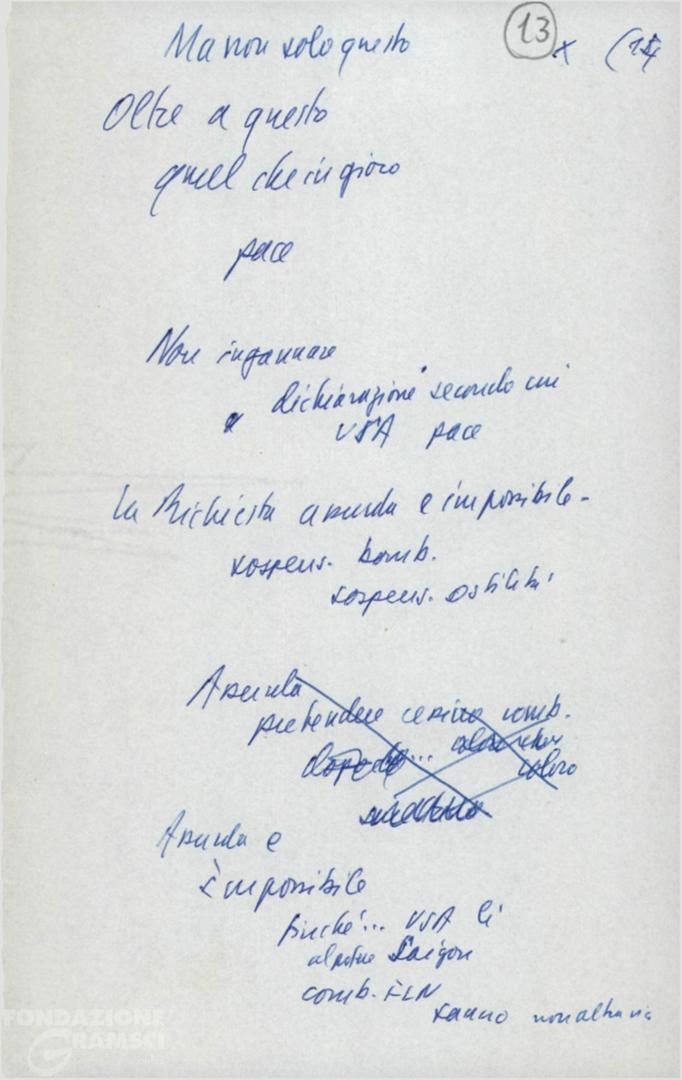 13 x (14
Ma non solo questo
Oltre a questo
quel che in gioco
pace
Non ingannare
dichiarazione secondo cui
USA pace
la Richiesta assurda e impossibile -
sospens. bomb.
sospens. ostilità
Assurda
pretendere cessino comb.
coloro
Assurda e
impossibile
Finché... USA lì
Saigon
comb. FLN
sanno non altra via
FONDAZIONE
GRAMSCI